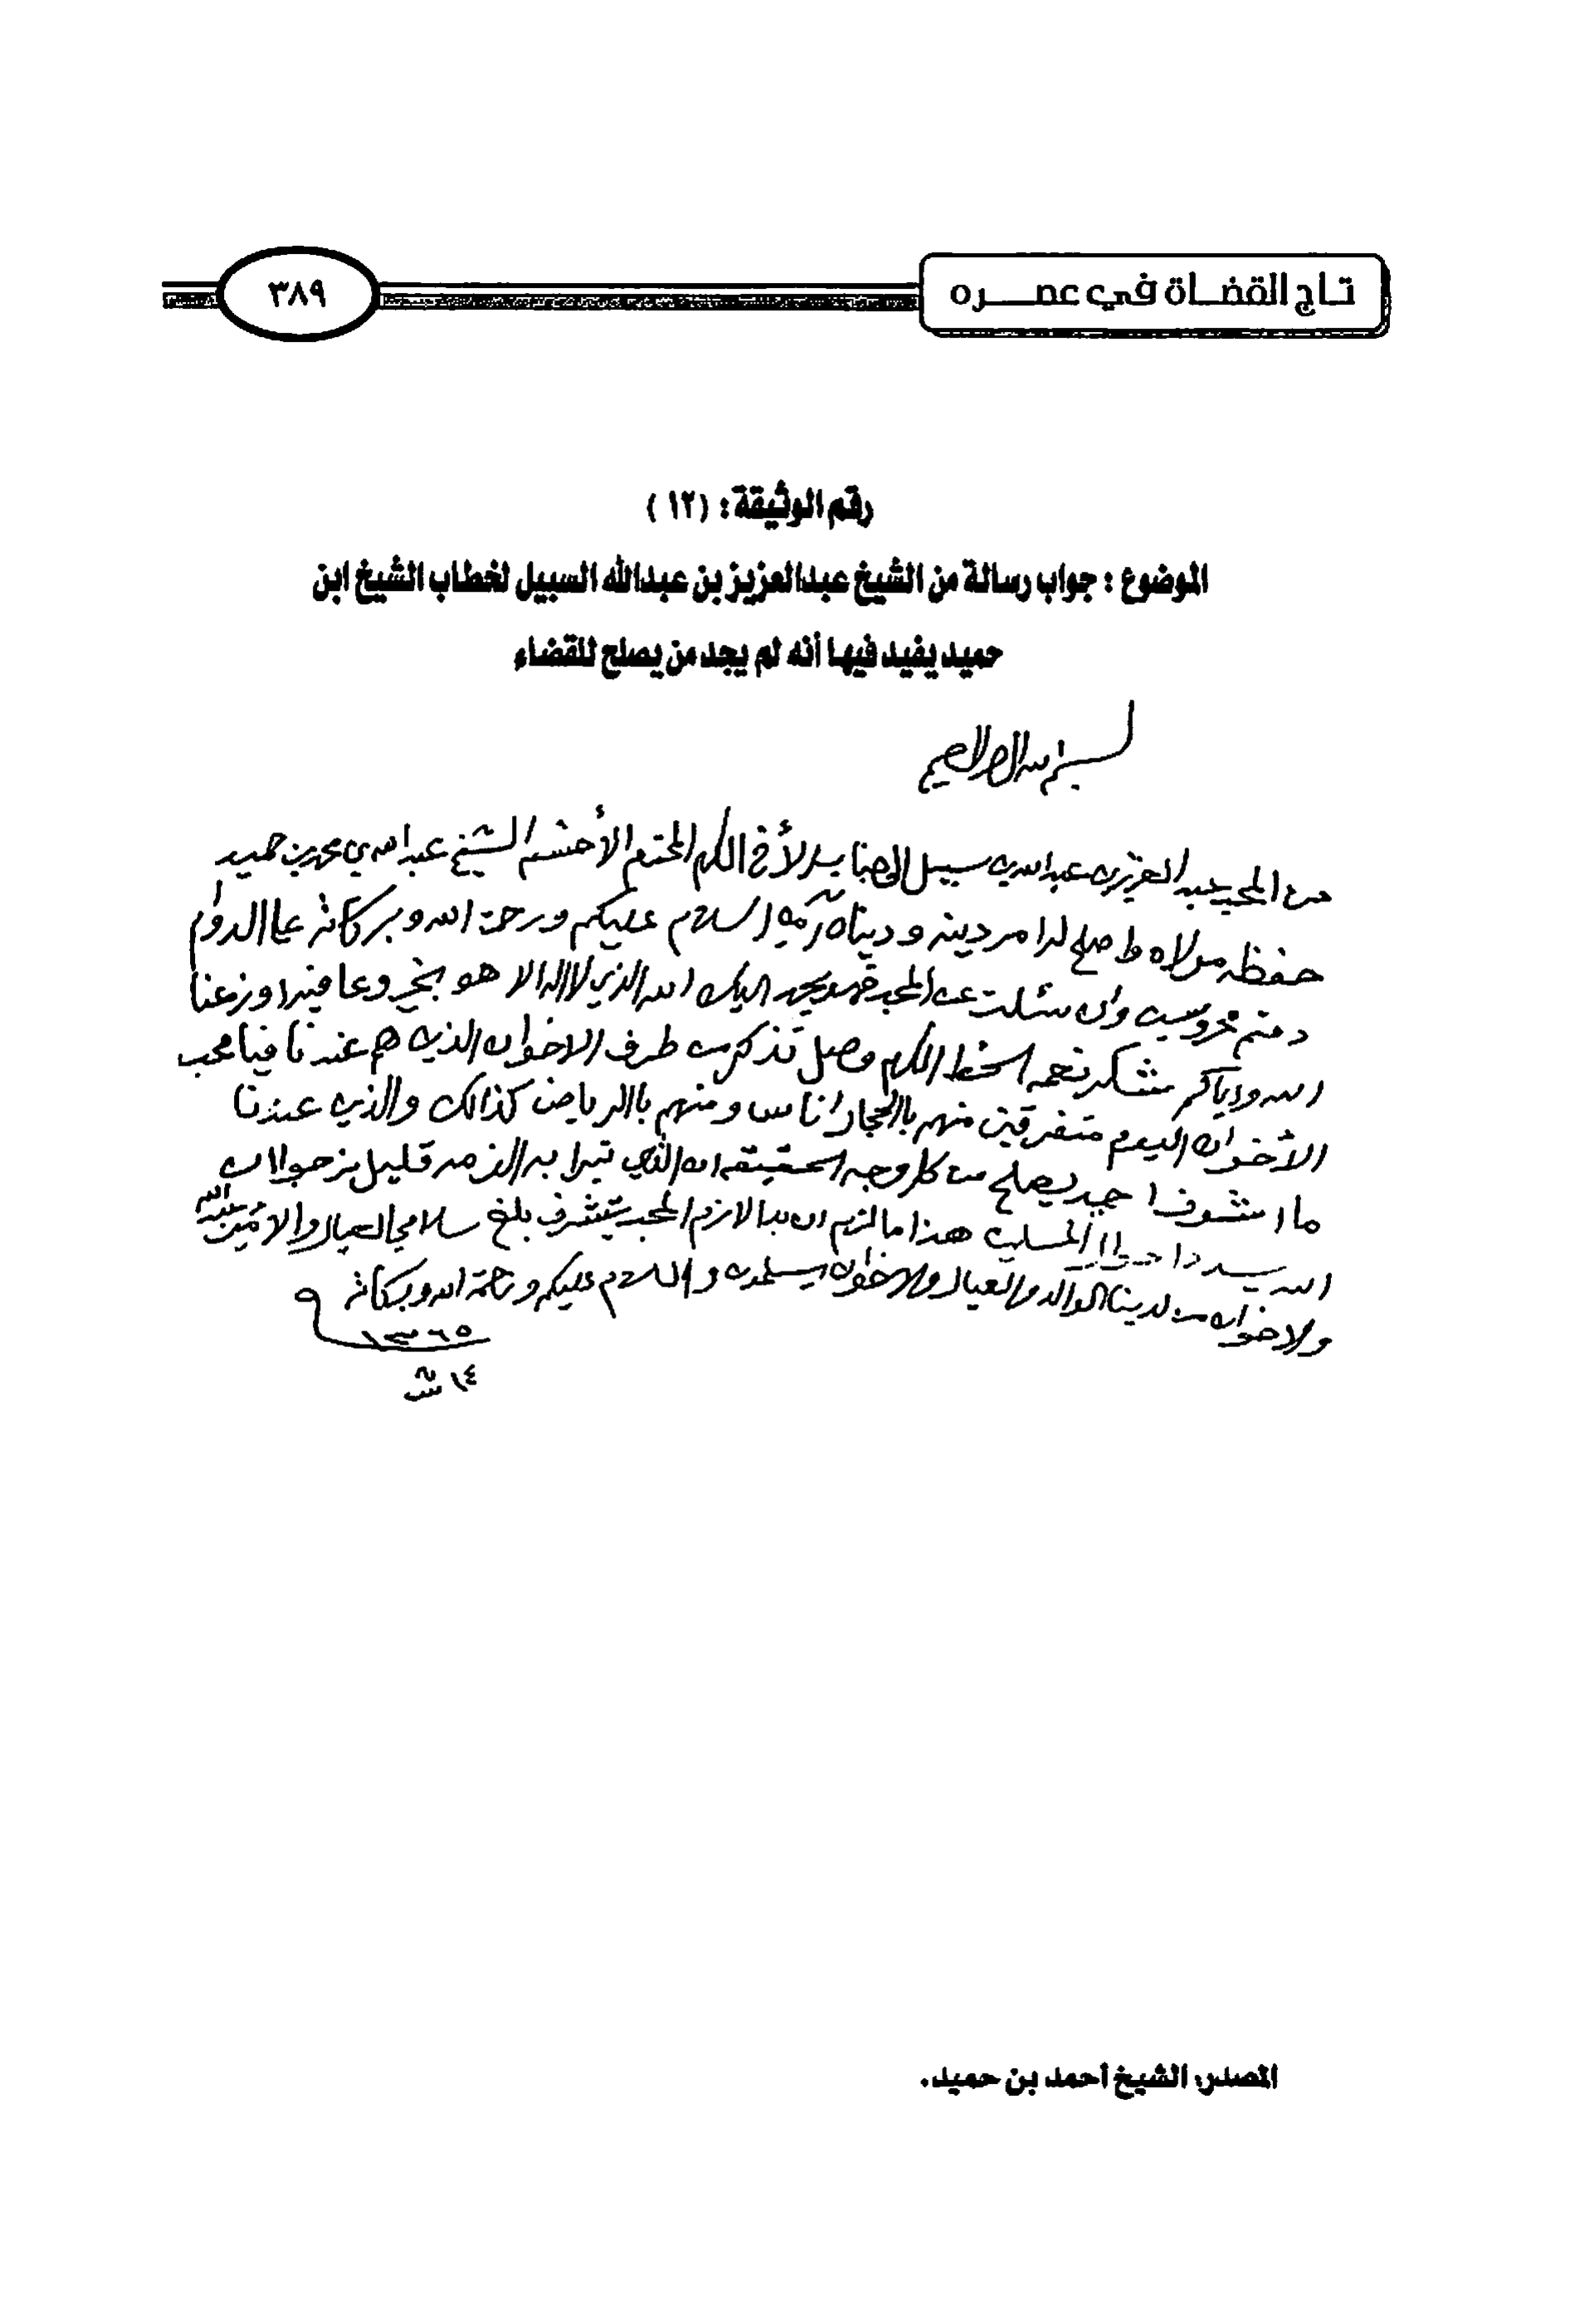 تاج القضاة في عصره
٣٨٩
رقم الوثيقة: (١٢)
الموضوع: جواب رسالة من الشيخ عبدالعزيز بن عبدالله السبيل لخطاب الشيخ ابن
حميد يفيد فيها أنه لم يجد من يصلح للقضاء
بسم الله الرحمن الرحيم
من المحب عبد العزيز بن عبد الله بن سبيل الى جناب الأخ المكرم المحترم الأحشم الشيخ عبد الله بن محمد بن حميد
حفظه مولاه واصلح له امر دينه ودنياه آمين السلام عليكم ورحمة الله وبركاته على الدوام
دمتم محروسين وان سئلت عن المحب فهو يحمد اليك الله الذي لا اله الا هو بخير وعافيه اوزعنا
الله واياكم شكر نعمه الخط المكرم وصل تذكر من طرف الاخوان الذين هم عندنا فيا محب
الأخوان اليوم متفرقين منهم باالحجاز اناس ومنهم باالرياض كذالك والذين عندنا
ما اشوف احد يصلح من كل وجه الحقيقه ان الذي تبرا به الذمه قليل نرجوا ان
الله يسدد احوال المسلمين هذا ما لزم ان بدا لازم المحب يتشرف بلغ سلامي العيال والأمير عبد الله
والاخوان من لدينا الوالد والعيال والاخوان يسلمون والسلام عليكم ورحمة الله وبركاته
١٣٦٥
١٤ ش
المصدر: الشيخ أحمد بن حميد.